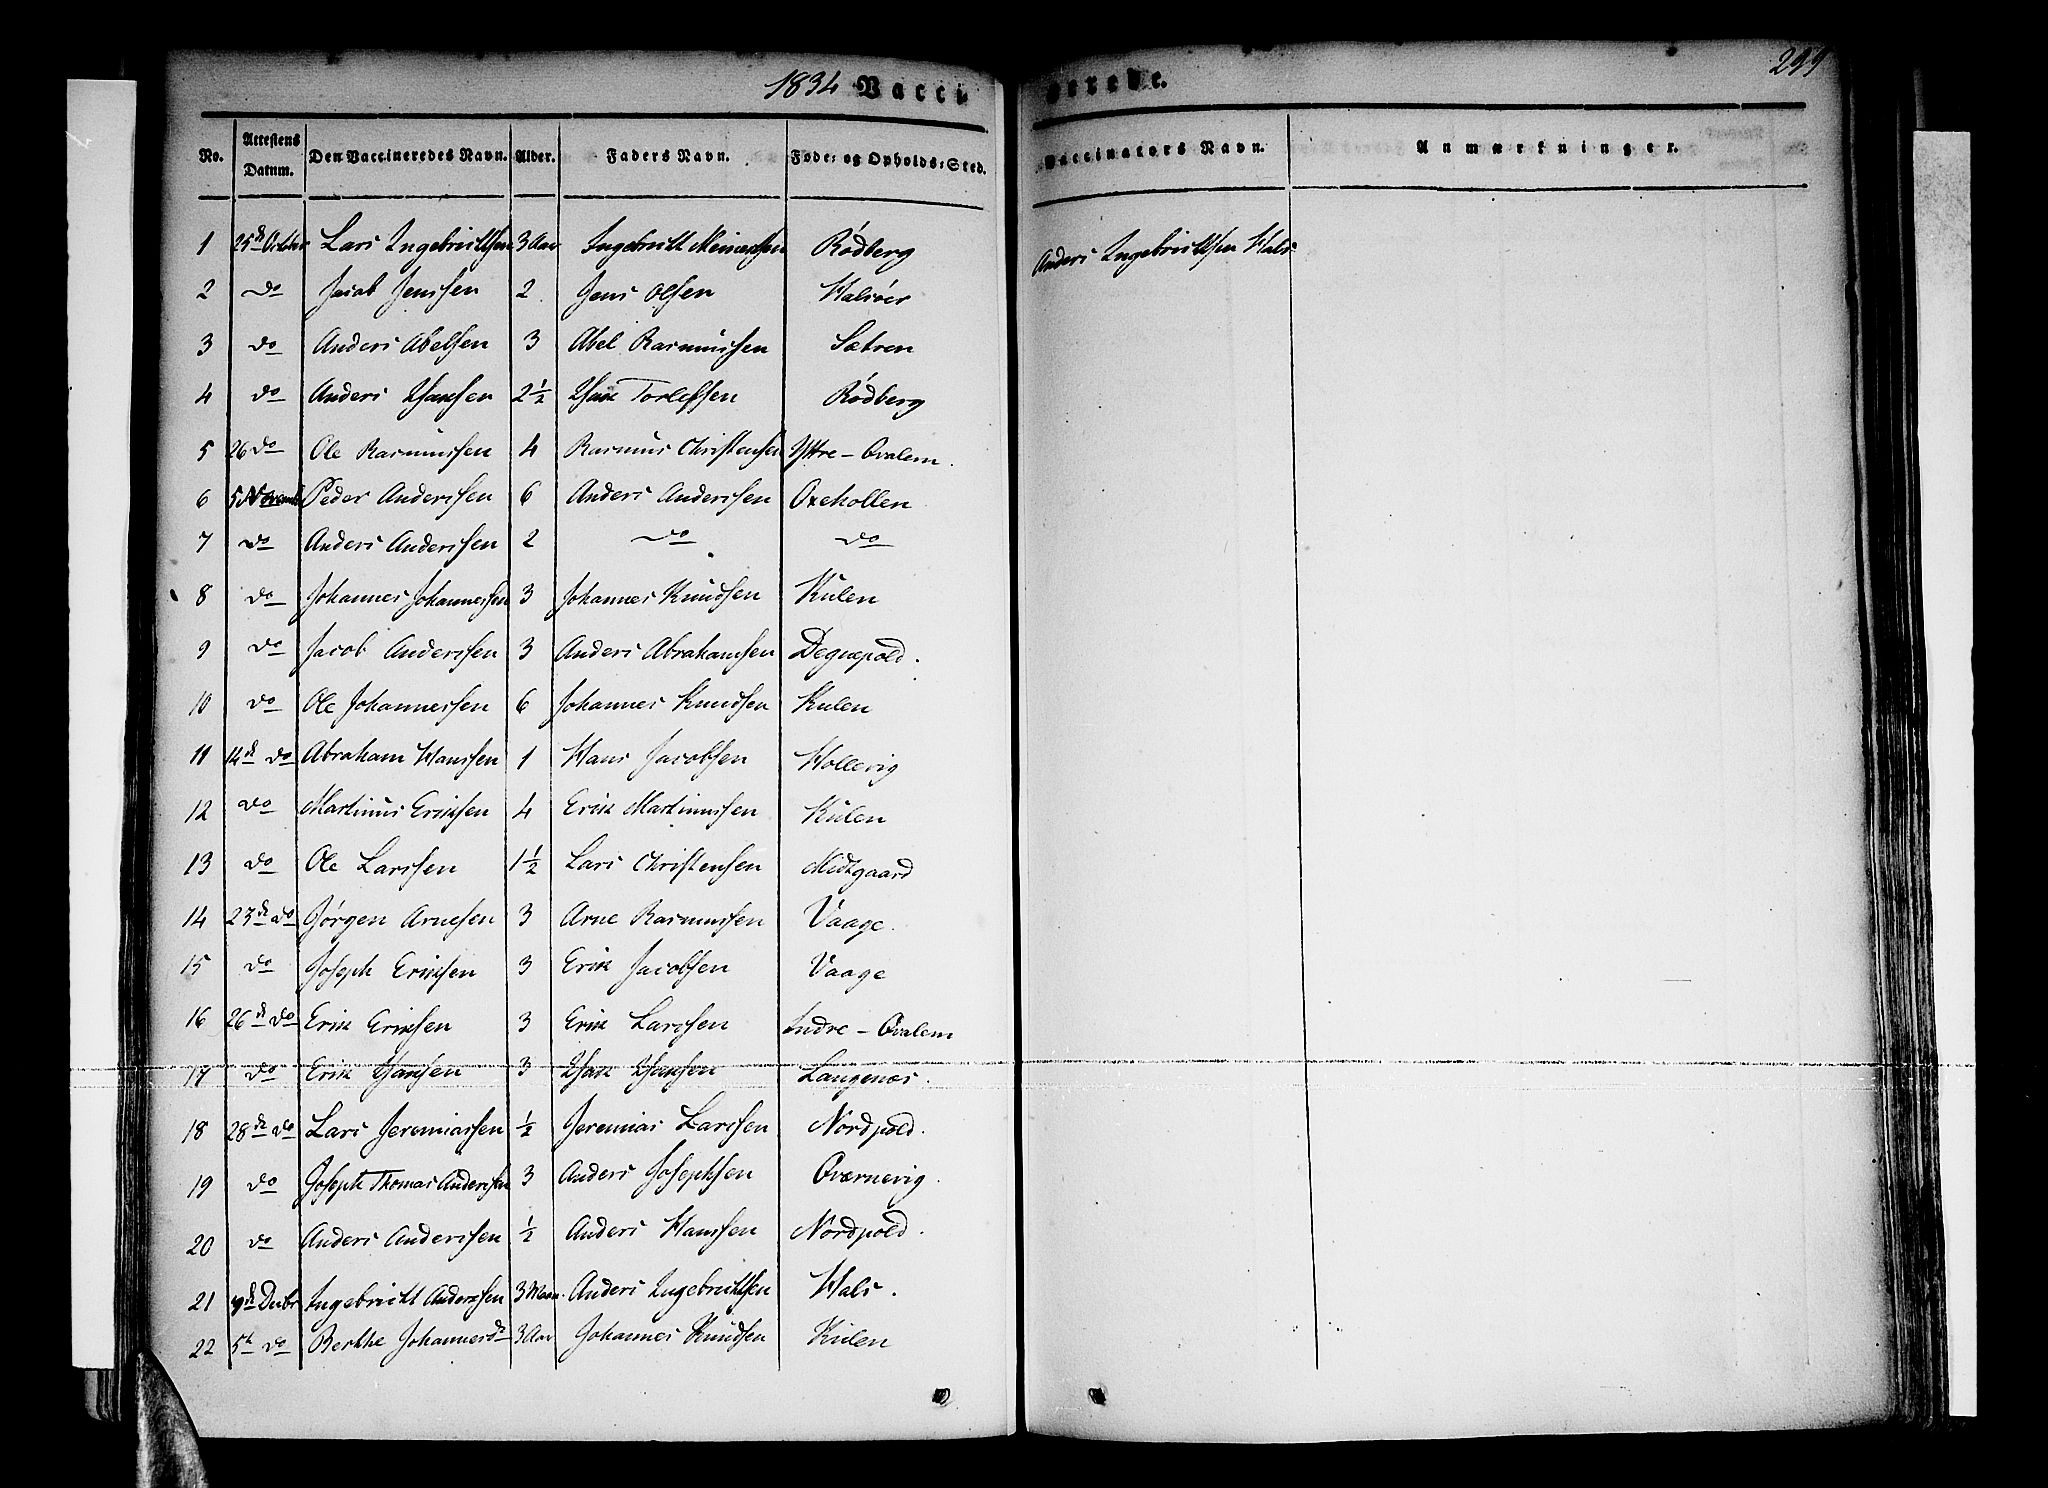 1834 Vaccinerede. 299
No. Attestens Datum. Den Vaccineredes Navn. Alder. Faders Navn. Føde- og Opholds-Sted. Vaccinators Navn. Anmærkninger.
1 25de October Lars Ingebrichtsen 3 Aar Ingebricht Rødberg Anders Ingebrichtsen Hals
2 do Jacob Jenssen 2 Jens Olsen Halsöer
3 do Anders Abelsen 3 Abel Rasmussen Sætren
4 do Anders Isaksen 2 1/2 Isak Torlefsen Rødberg
5 26 do Ole Rasmussen 4 Rasmus Christensen Yttre - Qvalem.
6 5 November Peder Anderssen 6 Anders Anderssen Oxehollen
7 do Anders Anderssen 2 do do
8 do Johannes Johannessen 3 Johannes Knudsen Kulen
9 do Jacob Anderssen 3 Anders Abrahamsen Degnepold.
10 do Ole Johannessen 6 Johannes Knudsen Kulen
11 14de do Abraham Hanssen 1 Hans Jacobsen Hollevig
12 do Martinus Eriksen 4 Erik Martinussen Kulen
13 do Ole Larssen 1 1/2 Lars Christensen Midtgaard
14 23de do Jørgen Arnesen 3 Arne Rasmussen Vaage.
15 do Joseph Eriksen 3 Erik Jacobsen Vaage
16 26de do Erik Eriksen 3 Erik Larssen Indre - Qvalem
17 do Erik Isaksen 3 Isak Isaksen Langenæs.
18 28de do Lars Jeremiassen 1/2 Jeremias Larssen Nordpold.
19 do Joseph Thomas Anderssen 3 Anders Josephsen Qværnevig.
20 do Anders Anderssen 1/2 Anders Hanssen Nordpold.
21 Decbr Ingebricht Anderssen 3 Maan. Anders Ingebrichtsen Hals.
22 5te do Berthe Johannesdr 3 Aar Johannes Knudsen Kulen